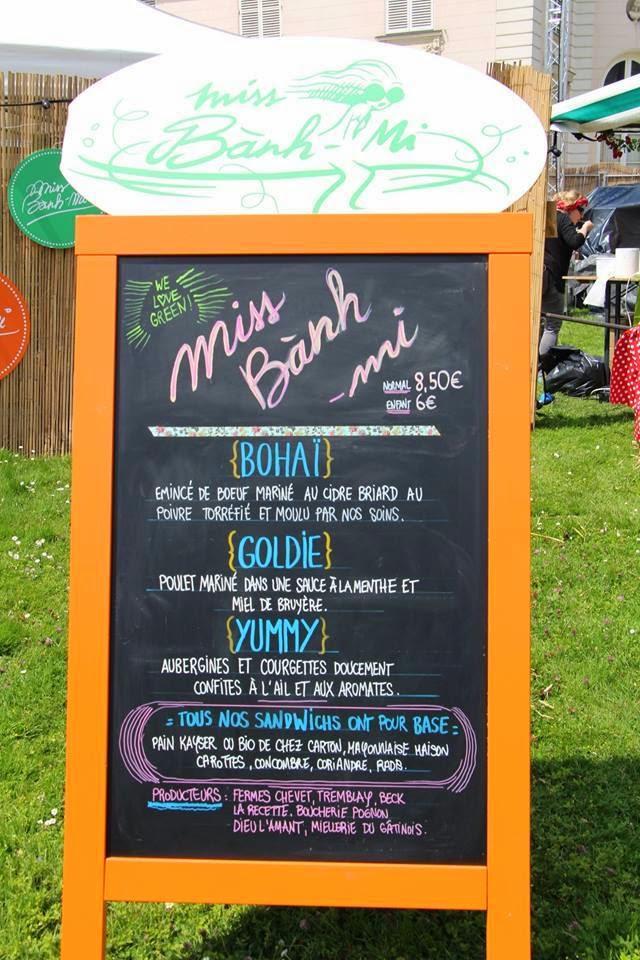 miss
Bành-Mi
miss
Bành-Mi
WE
LOVE
GREEN!
miss
Bành
-mi
NORMAL 8,50€
ENFANT 6€
{BOHAÏ}
EMINCÉ DE BOEUF MARINÉ AU CIDRE BRIARD AU
POIVRE TORRÉFIÉ ET MOULU PAR NOS SOINS.
{GOLDIE}
POULET MARINÉ DANS UNE SAUCE À LA MENTHE ET
MIEL DE BRUYÈRE.
{YUMMY}
AUBERGINES ET COURGETTES DOUCEMENT
CONFITES À L'AIL ET AUX AROMATES.
= TOUS NOS SANDWICHS ONT POUR BASE =
PAIN KAYSER OU BIO DE CHEZ CARTON, MAYONNAISE MAISON
CAROTTES, CONCOMBRE, CORIANDRE, RADIS.
PRODUCTEURS : FERMES CHEVET, TREMBLAY, BECK
LA RECETTE, BOUCHERIE POGNON
DIEU L'AMANT, MIELLERIE DU GÂTINOIS.